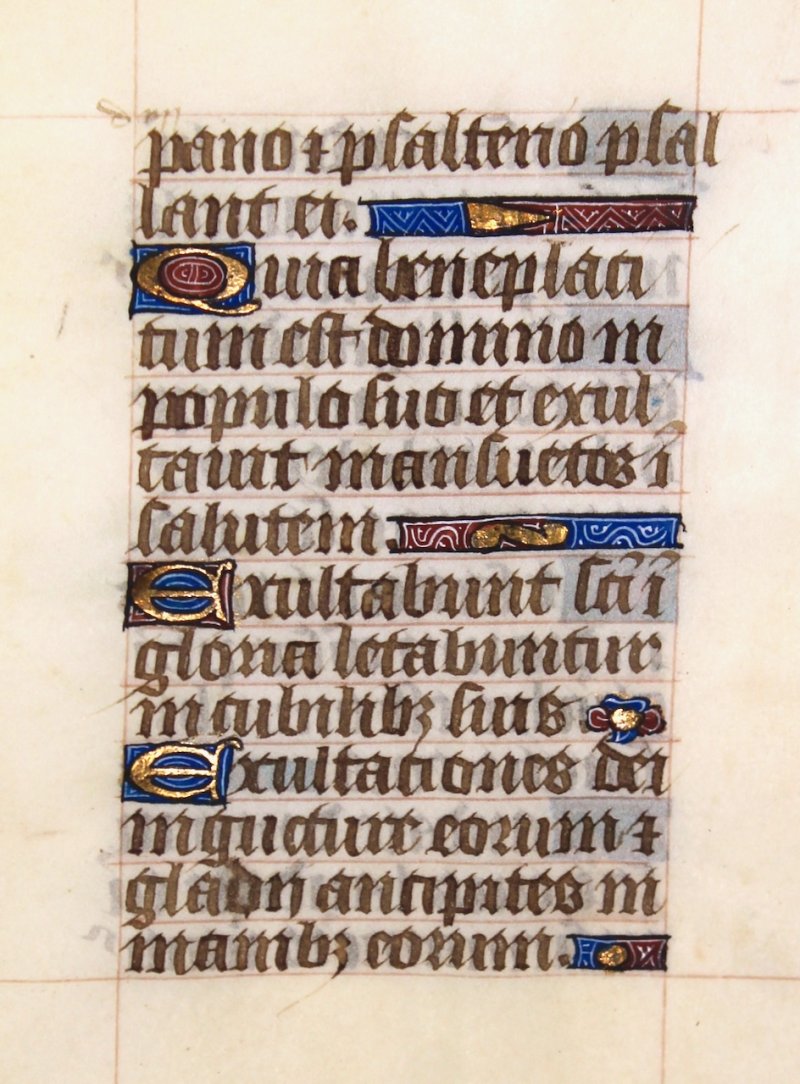 pano ⁊ psalterio psal
lant ei.
Quia beneplaci
tum est domino in
populo suo et exul
tauit mansuetos ī
salutem.
Exultabunt sc̄i ī
gloria letabuntur
in cubilibꝫ suis
Exultaciones dei
in gucture eorum ⁊
gladij ancipites in
manibꝫ eorum.